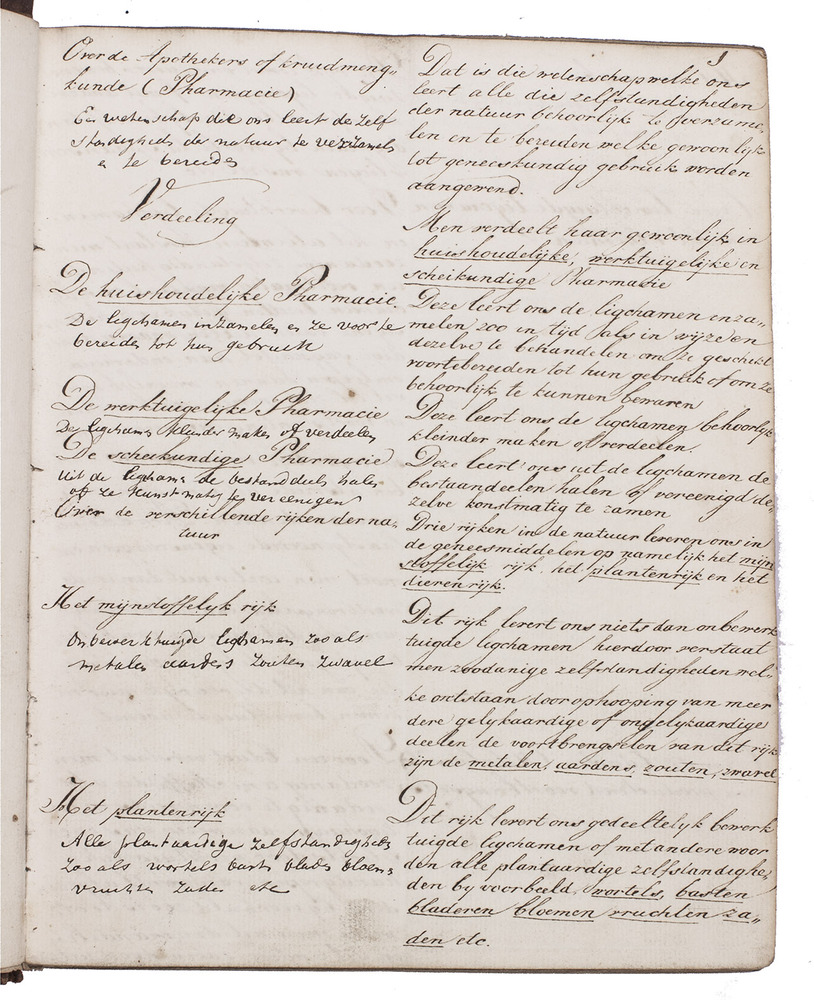 1
Over de Apothekers of kruidmeng„
kunde (Pharmacie)
Een wetenschap die ons leert de zelf
standigheds der natuur te verzamels
e te bereides
Verdeeling
De huishoudelijke Pharmacie.
De ligchamen inzamelen es ze voor te
bereides tot hun gebruik
De werktuigelijke Pharmacie
De ligchams kleinder maken of verdeelen
De scheikundige Pharmacie
uit de ligchams de bestanddeels halen
of ze kunstmatig te vereenigen
Over de verschillende rijken der na„
tuur
Het mijnstoffelijk rijk
Onbewerktuigde ligchamen zooals
metalen aardens zouten zwavel
Het plantenrijk
Alle plantaardige zelfstandigheds
zooals wortels basts blads bloems
vruchts zades etc
Dat is die wetenschap welke ons
leert alle die zelfstandigheden
der natuur behoorlijk te verzame„
len en te bereiden welke gewoonlijk
tot geneeskundig gebruik worden
aangewend.
Men verdeelt haar gewoonlijk in
huishoudelijke, werktuigelijke en
scheikundige Pharmacie
Deze leert ons de ligchamen inza„
melen zoo in tijd als in wijze en
dezelve te behandelen om ze geschikt
voortebereiden tot hun gebruik of om ze
behoorlijk te kunnen bewaren
Deze leert ons de ligchamen behoorlijk
kleinder maken of verdeelen.
Deze leert ons uit de ligchamen de
bestaandeelen halen of vereenigd de„
zelve konstmatig te zamen
Drie rijken in de natuur leveren ons in
de geneesmiddelen op namelijk het mijn
stoffelijk rijk, het plantenrijk en het
dierenrijk.
Dit rijk levert ons niets dan onbewerk
tuigde ligchamen hierdoor verstaat
men zoodanige zelfstandigheden wel„
ke ontstaan door ophooping van meer
dere gelykaardige of ongelykaardige
deelen de voortbrengselen van dit rijk
zijn de metalen, aardens, zouten, zwavel
Dit rijk levert ons gedeeltelijk bewerk
tuigde ligchamen of met andere woor
den alle plantaardige zelfstandighe„
den by voorbeeld, wortels, basten
bladeren bloemen vruchten za„
den etc.